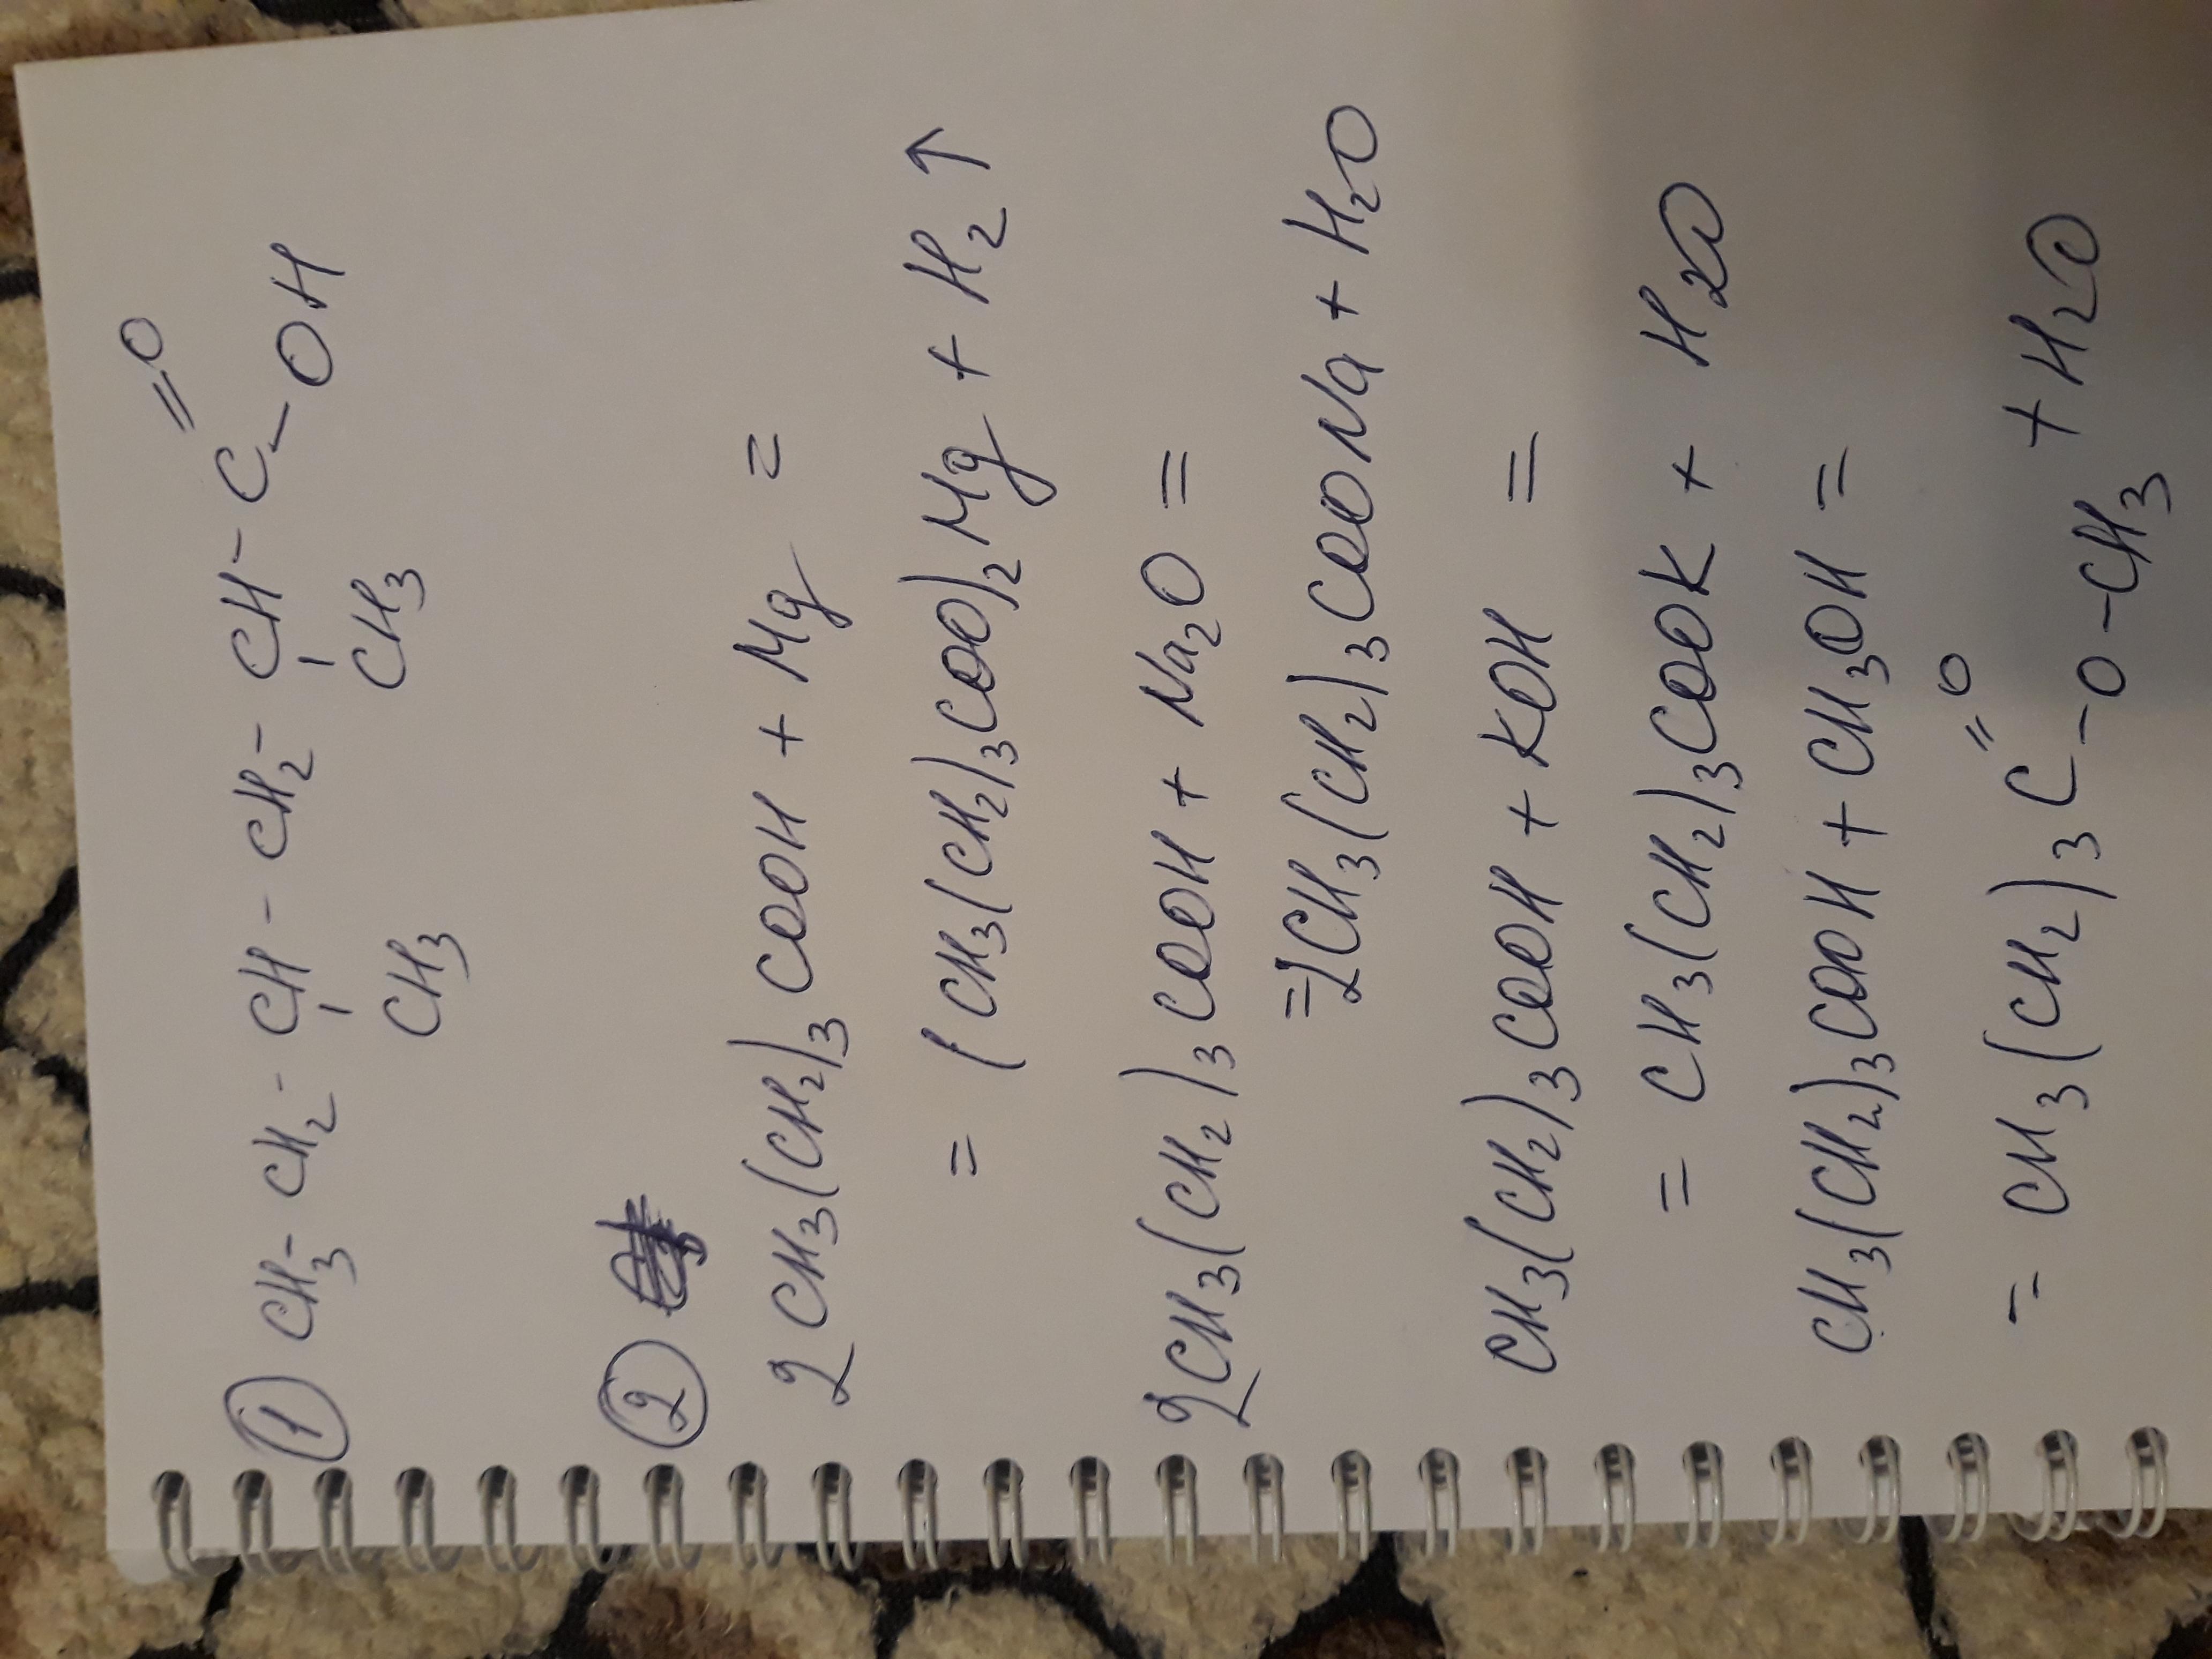 ① CH₃-CH₂-CH-CH₂-CH-C=O
CH₃ CH₃ -OH
②
2CH₃(CH₂)₃COOH + Mg =
= (CH₃(CH₂)₃COO)₂Mg + H₂↑
2CH₃(CH₂)₃COOH + Na₂O =
=2CH₃(CH₂)₃COONa + H₂O
CH₃(CH₂)₃COOH + KOH =
= CH₃(CH₂)₃COOK + H₂O
CH₃(CH₂)₃COOH + CH₃OH =
= CH₃(CH₂)₃C=O-O-CH₃ + H₂O